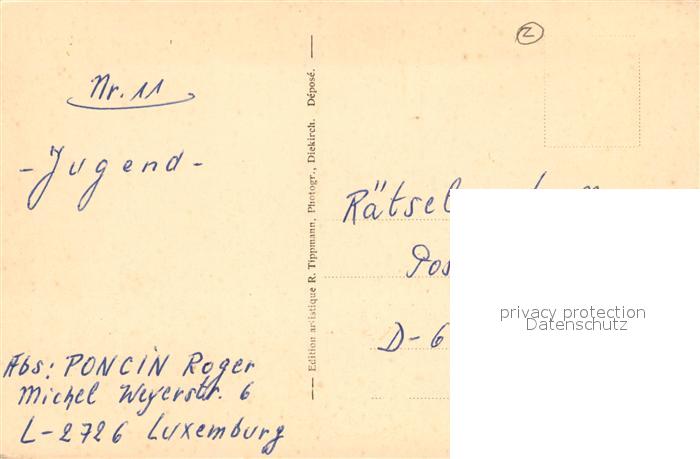 2
Nr. 11
- Jugend -
Abs: PONCIN Roger
Michel Weyerstr. 6
L-2726 Luxemburg
Edition artistique R. Tippmann, Photogr., Diekirch. Déposé.
Rätsel
Pos
D-6
privacy protection
Datenschutz